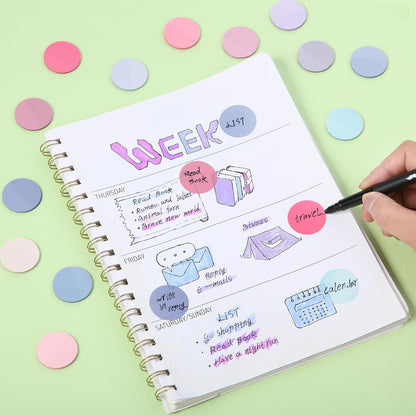 WEEK LIST
THURSDAY
Read Book
• Animal farm
• Brave new world
Read Book
travel
FRIDAY
Reply
E-mails
write in reply
calendar
SATURDAY/SUNDAY
LIST
go shopping
• Read Book
• Have a night run